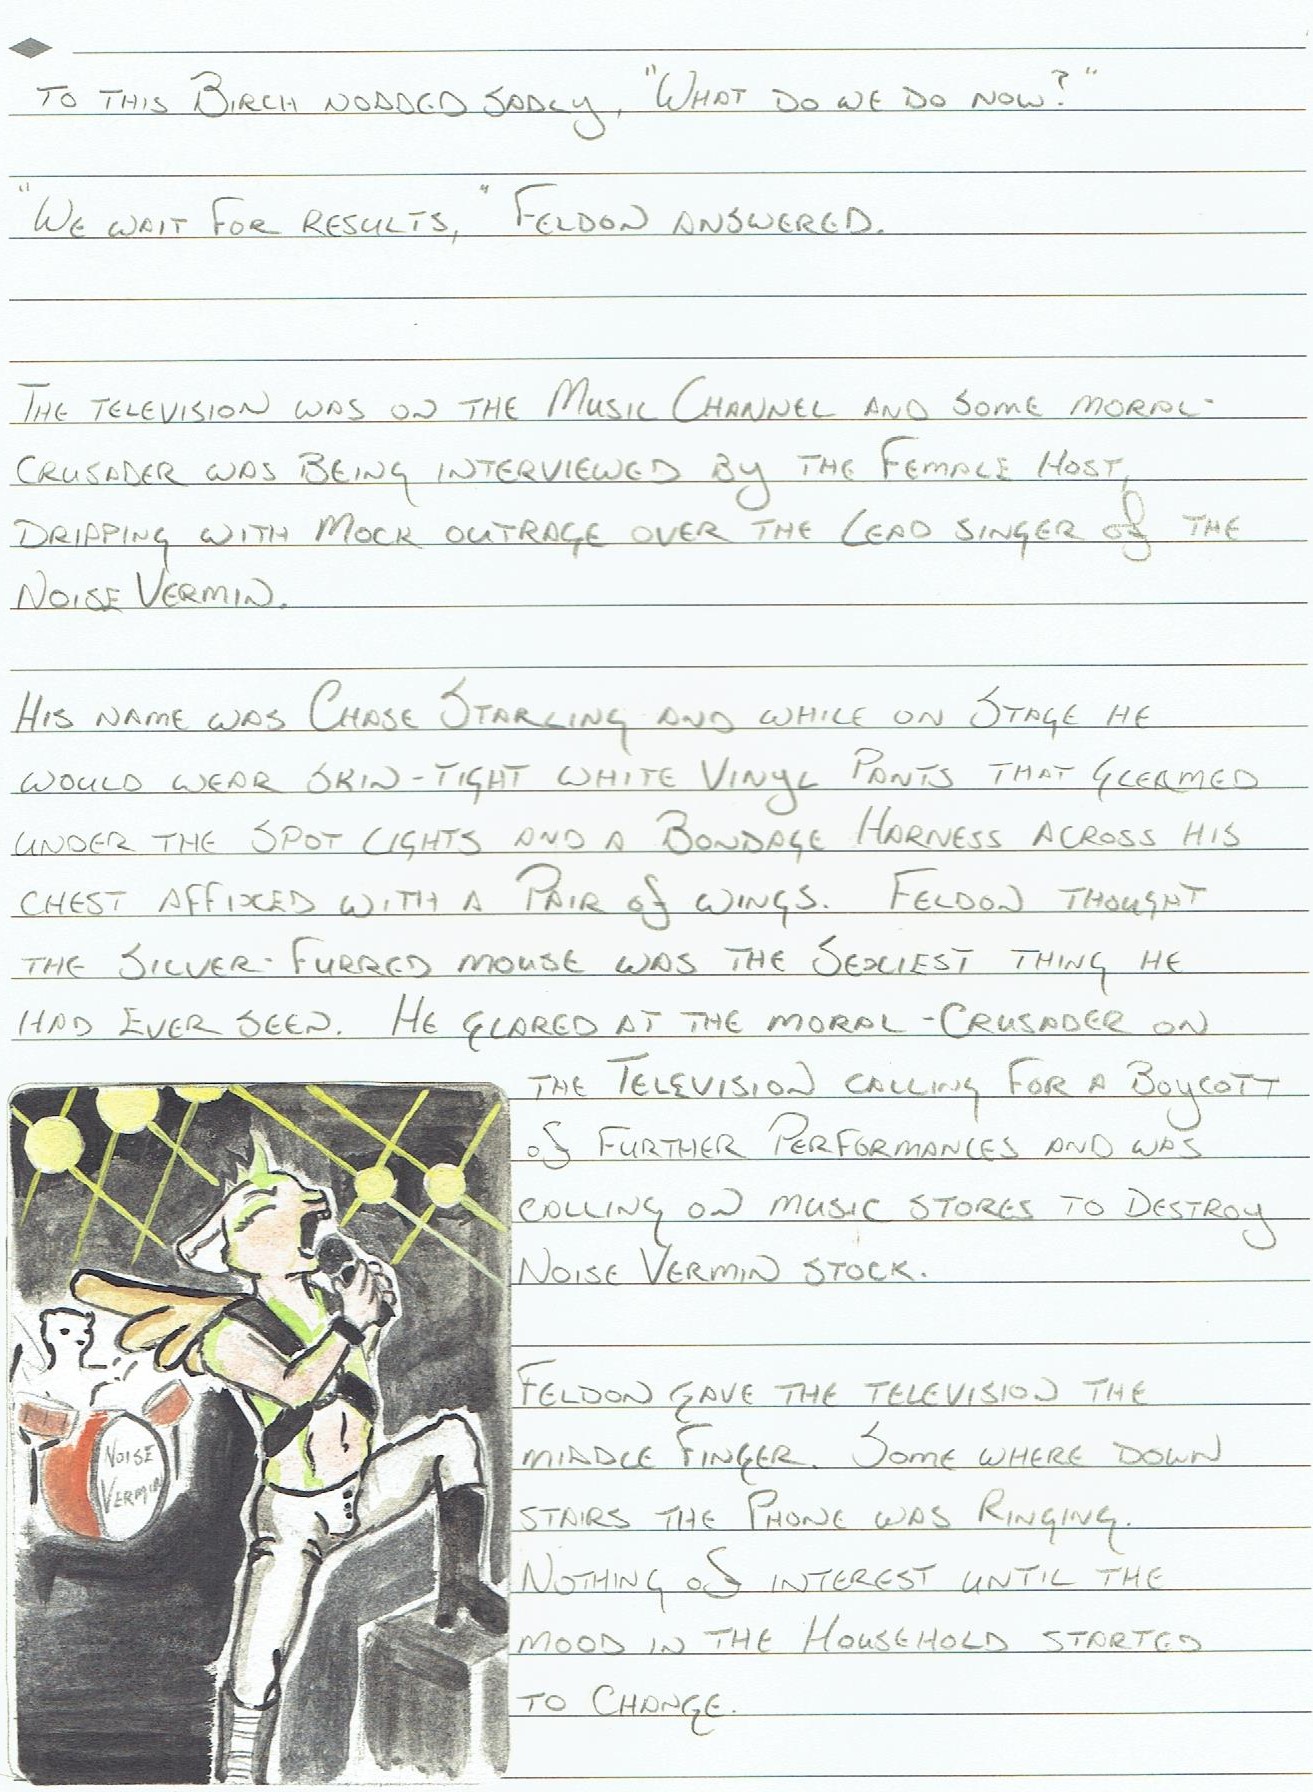 To this Birch nodded sadly, "What do we do now?"
"We wait for results," Feldon answered.
The television was on the Music Channel and some moral-
crusader was being interviewed by the female host,
dripping with mock outrage over the lead singer of the
Noise Vermin.
His name was Chase Starling and while on stage he
would wear skin-tight white vinyl pants that gleamed
under the spot lights and a bondage harness across his
chest affixed with a pair of wings. Feldon thought
the silver-furred mouse was the sexiest thing he
had ever seen. He glared at the moral-crusader on
the television calling for a boycott
of further performances and was
calling on music stores to destroy
Noise Vermin stock.
Feldon gave the television the
middle finger. Some where down
stairs the phone was ringing.
Nothing of interest until the
mood in the household started
to change.
Noise
Vermin